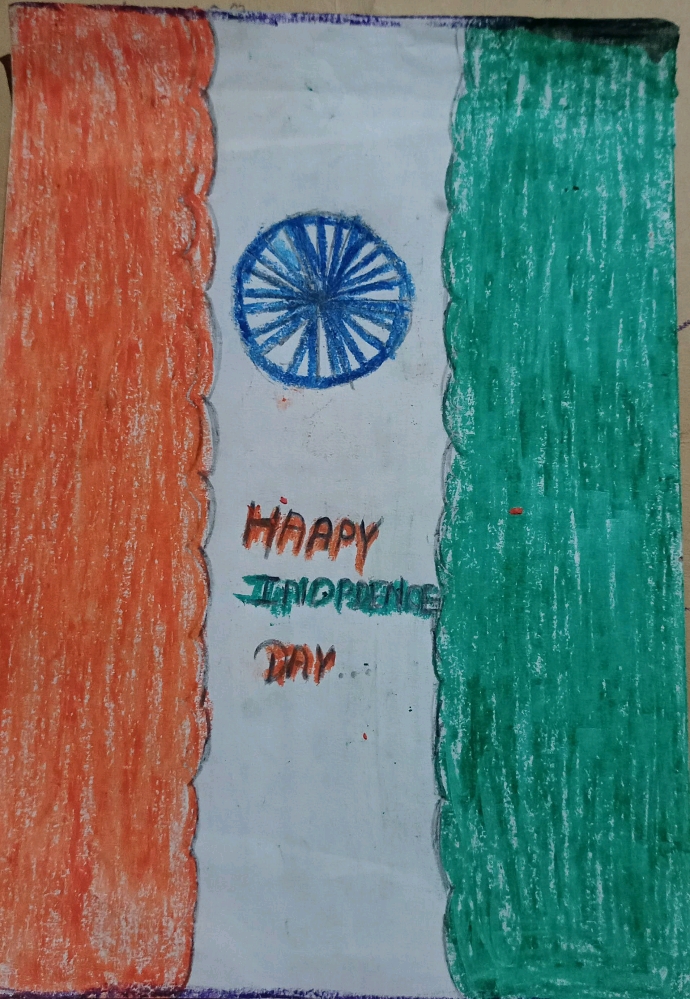 HAAPY
INDPDENCE
DAY...